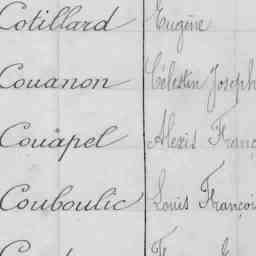 Cotillard Eugène
Couanon Célestin Joseph
Couâpel Alexis Franç
Couboulic Louis Françoi